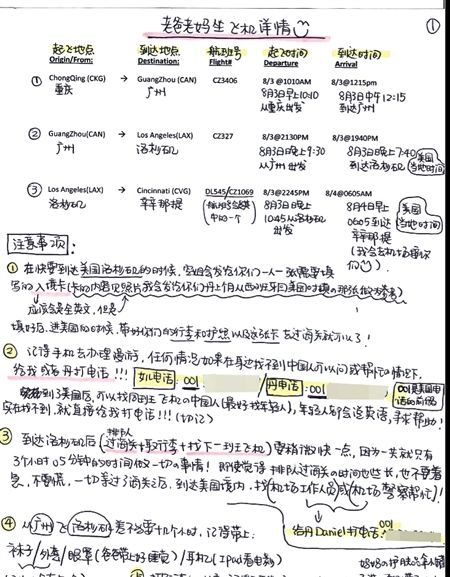 老爸老妈坐飞机详情 ①
起飞地点 到达地点 航班号 起飞时间 到达时间
Origin/From: Destination: Flight# Departure Arrival
① ChongQing (CKG) → GuangZhou (CAN) CZ3406 8/3 @1010AM 8/3@1215pm
重庆 广州 8月3日早上10:10 8月3日中午12:15
从重庆出发 到达广州
② GuangZhou(CAN) → Los Angeles(LAX) CZ327 8/3@2130PM 8/3@1940PM
广州 洛杉矶 8月3日晚上9:30 8月3日晚上7:40 美国
从广州出发 到达洛杉矶 当地时间
③ Los Angeles(LAX) → Cincinnati (CVG) DL545/CZ1069 8/3@2245PM 8/4@0605AM
洛杉矶 辛辛那提 8月3日晚上 8月4日早上 美国
10:45从洛杉矶 0605到达 当地时间
出发 辛辛那提
(我会去机场接你
们)
注意事项:
① 在快要到达美国洛杉矶的时候,空姐会发给你们一人一张需要填
写的入境卡
应该是全英文,但是
填好后,进美国的时候,带好你们的行李和护照以及这张卡去过海关就可以了!
② 记得手机去办理漫游,任何情况如果在身边找不到中国人可以问或帮忙的情况下,
给我或者丹打电话!!! 如电话:001 / 丹电话:001 001是美国电
话的前缀
到了美国后,可以找同班飞机的中国人(最好找年轻人),年轻人都会说英语,寻求帮助!
实在找不到,就直接给我打电话!!!(切记)
排队
③ 到达洛杉矶后(过海关+取行李+找下一班飞机)要稍微快一点,因为一共就只有
3个小时05分钟的时间做一切的事情!即使觉得排队过海关的时间也些长,也不要着
急,不要慌,一切等过了海关之后,到达美国境内,找(机场工作人员或机场警察帮忙)!
给丹Daniel打电话:001
④ 从广州飞洛杉矶差不多要十几个小时,记得带上:
袜子/外套/眼罩(爸带上好睡觉)/耳机(IPad看电影)